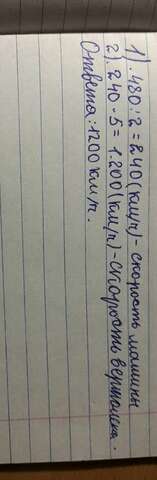 1). 480 : 2 = 240 (км/ч) - скорость машины
2). 240 · 5 = 1.200 (км/ч) - скорость вертолёта.
Ответ: 1200 км/ч.